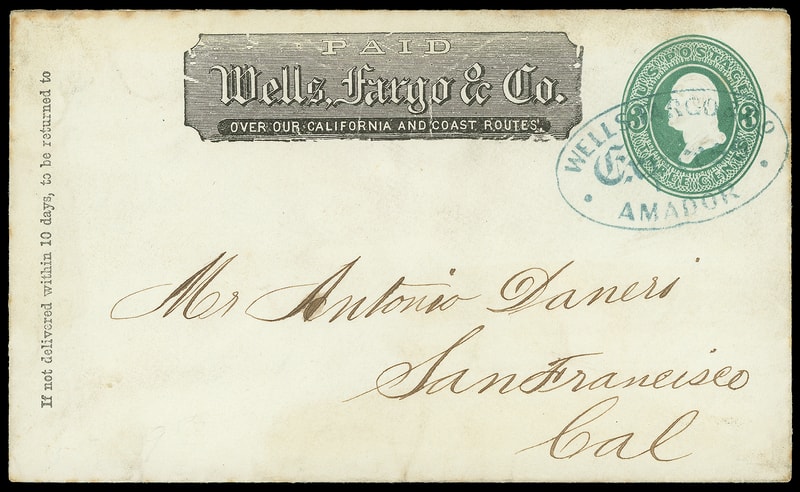 PAID
Wells, Fargo & Co.
OVER OUR CALIFORNIA AND COAST ROUTES.
U.S. POSTAGE
3 3
THREE CENTS
WELLS FARGO & CO
Ex
AMADOR
If not delivered within 10 days, to be returned to
Mr Antonio Daneri
San Francisco
Cal